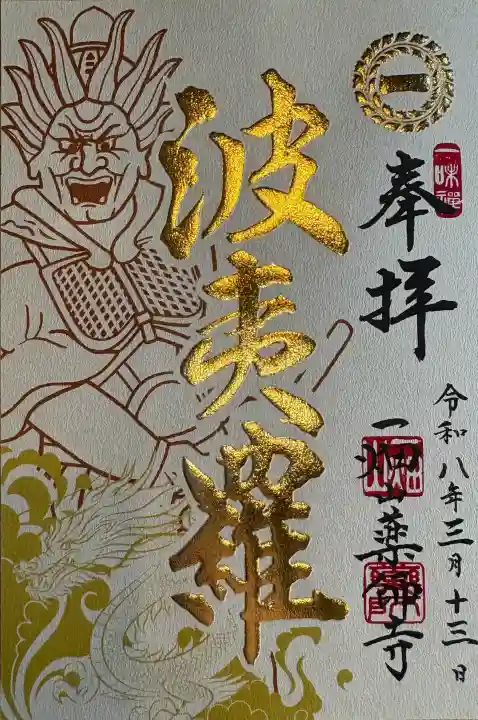 一
一味禅
奉拝
令和八年三月十三日
一畑山薬師寺
波夷羅